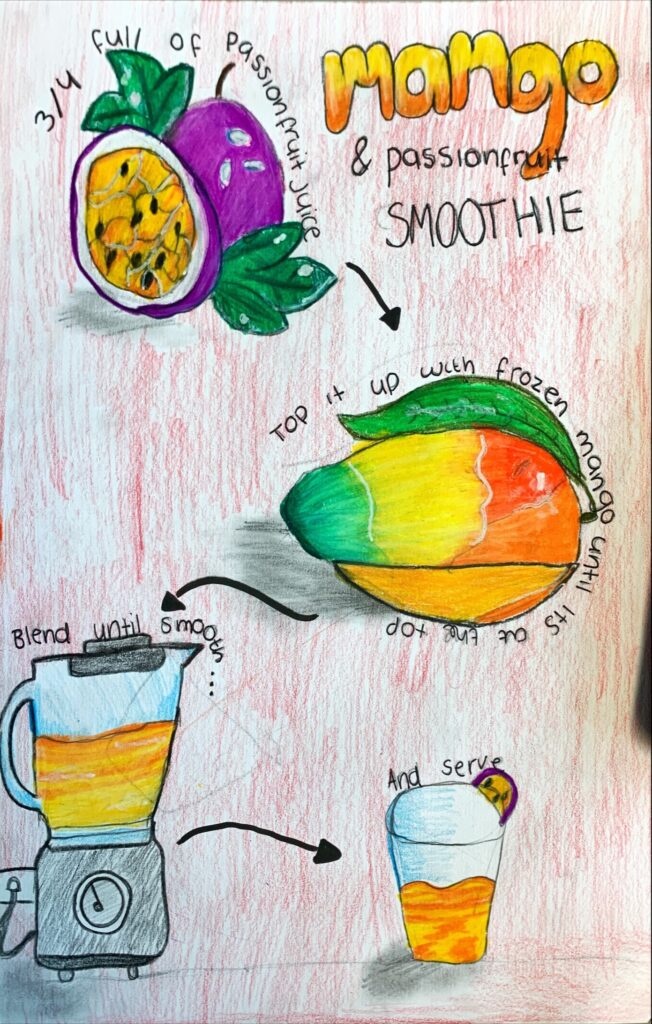 mango
& passionfruit
SMOOTHIE
3/4 full of passionfruit juice
Top it up with frozen mango until its at the top
Blend until smooth....
And serve